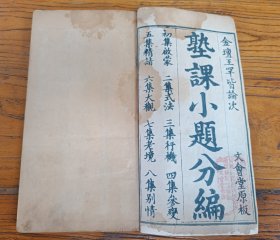 金壇王罕皆論次
塾課小題分編
初集啟蒙 二集式法 三集行機 四集參變
五集精詣 六集大觀 七集老境 八集別情
文會堂原板